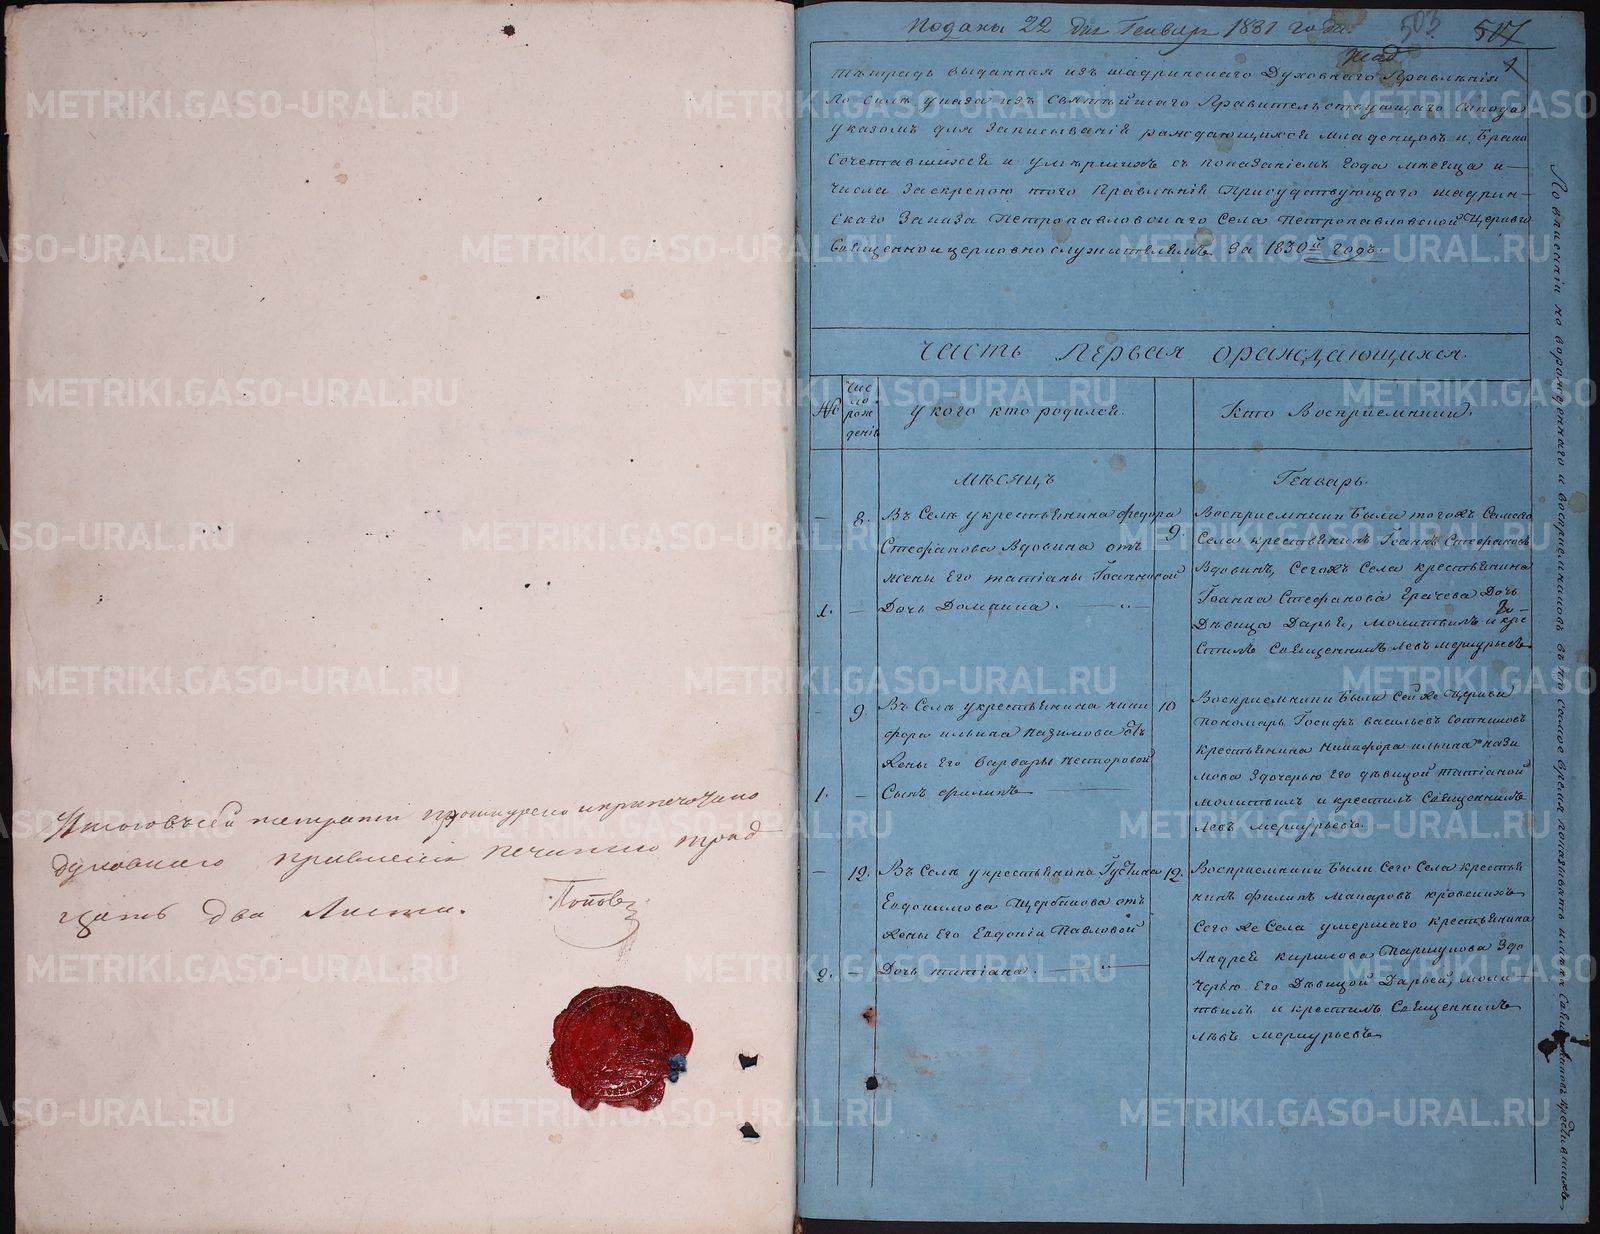 Итого въ сей тетрати прошнурено и припечатано
духовнаго правления печатью трид
цать два Листа.
Поповъ
Поданы 22 дня Генвар 1831 года
503
517
1
тетрадь выданная изъ шадринскаго Духовнаго Правлѣнія
По силѣ указа изъ Святѣйшаго Правительствующаго Синода
указомъ для Записыванія раждающихся младенцовъ и Брако
Сочетавшихся и умѣршихъ съ показаніемъ Года мѣсяца и
числа За скрепою того Правлѣнія Присудствующаго шадрин-
скаго Заказа Петропавловскаго Села Петропавловской Церкви
Священноицерковнослужителямъ За 1830й годъ.
Часть Первая ораждающихся.
№
Чис
ло
рож
денія
У кого кто родился.
Кто Восприемники.
Мѣсяцъ
Генварь.
8.
Въ Селѣ укрестьянина федора
Стефанова Вдовина отъ
жены Его татіаны Іоанновой
1.
Дочь Домника.
9.
Восприемники Были тогожъ Самаго
Села крестьянинъ Іоаннъ Стефановъ
Вдовинъ, Сегожъ Села крестьянина
Іоанна Стефанова Грачева Дочь
Дѣвица Дарья, молитвилъ и кре-
стилъ Священникъ Левъ меркурьевъ
9.
Въ Селѣ укрестьянина ники
фора ильина назимова отъ
жены Его варвары несторовой
1.
Сынъ филипъ
10
Восприемники Были Сей же Церкви
пономарь Іосифъ васильевъ Сотниковъ
крестьянина никифора ильина нази
мова Здочерью Его дѣвицой татіаной
молитвилъ и крестилъ Священникъ
Левъ меркурьевъ.
12.
Въ Селѣ укрестьянина Густина
Евдокимова Щербакова отъ
жены Его Евдокіи Павловой
2.
Дочь татіана.
12.
Восприемники Были Сего Села крестья
нинъ филипъ макаровъ юровскихъ
Сего же Села умершаго крестьянина
Андрея кирилова Паршукова Здо
черью Его Дѣвицой Дарьей, моли
твилъ и крестилъ Священникъ
лѣвъ меркурьевъ